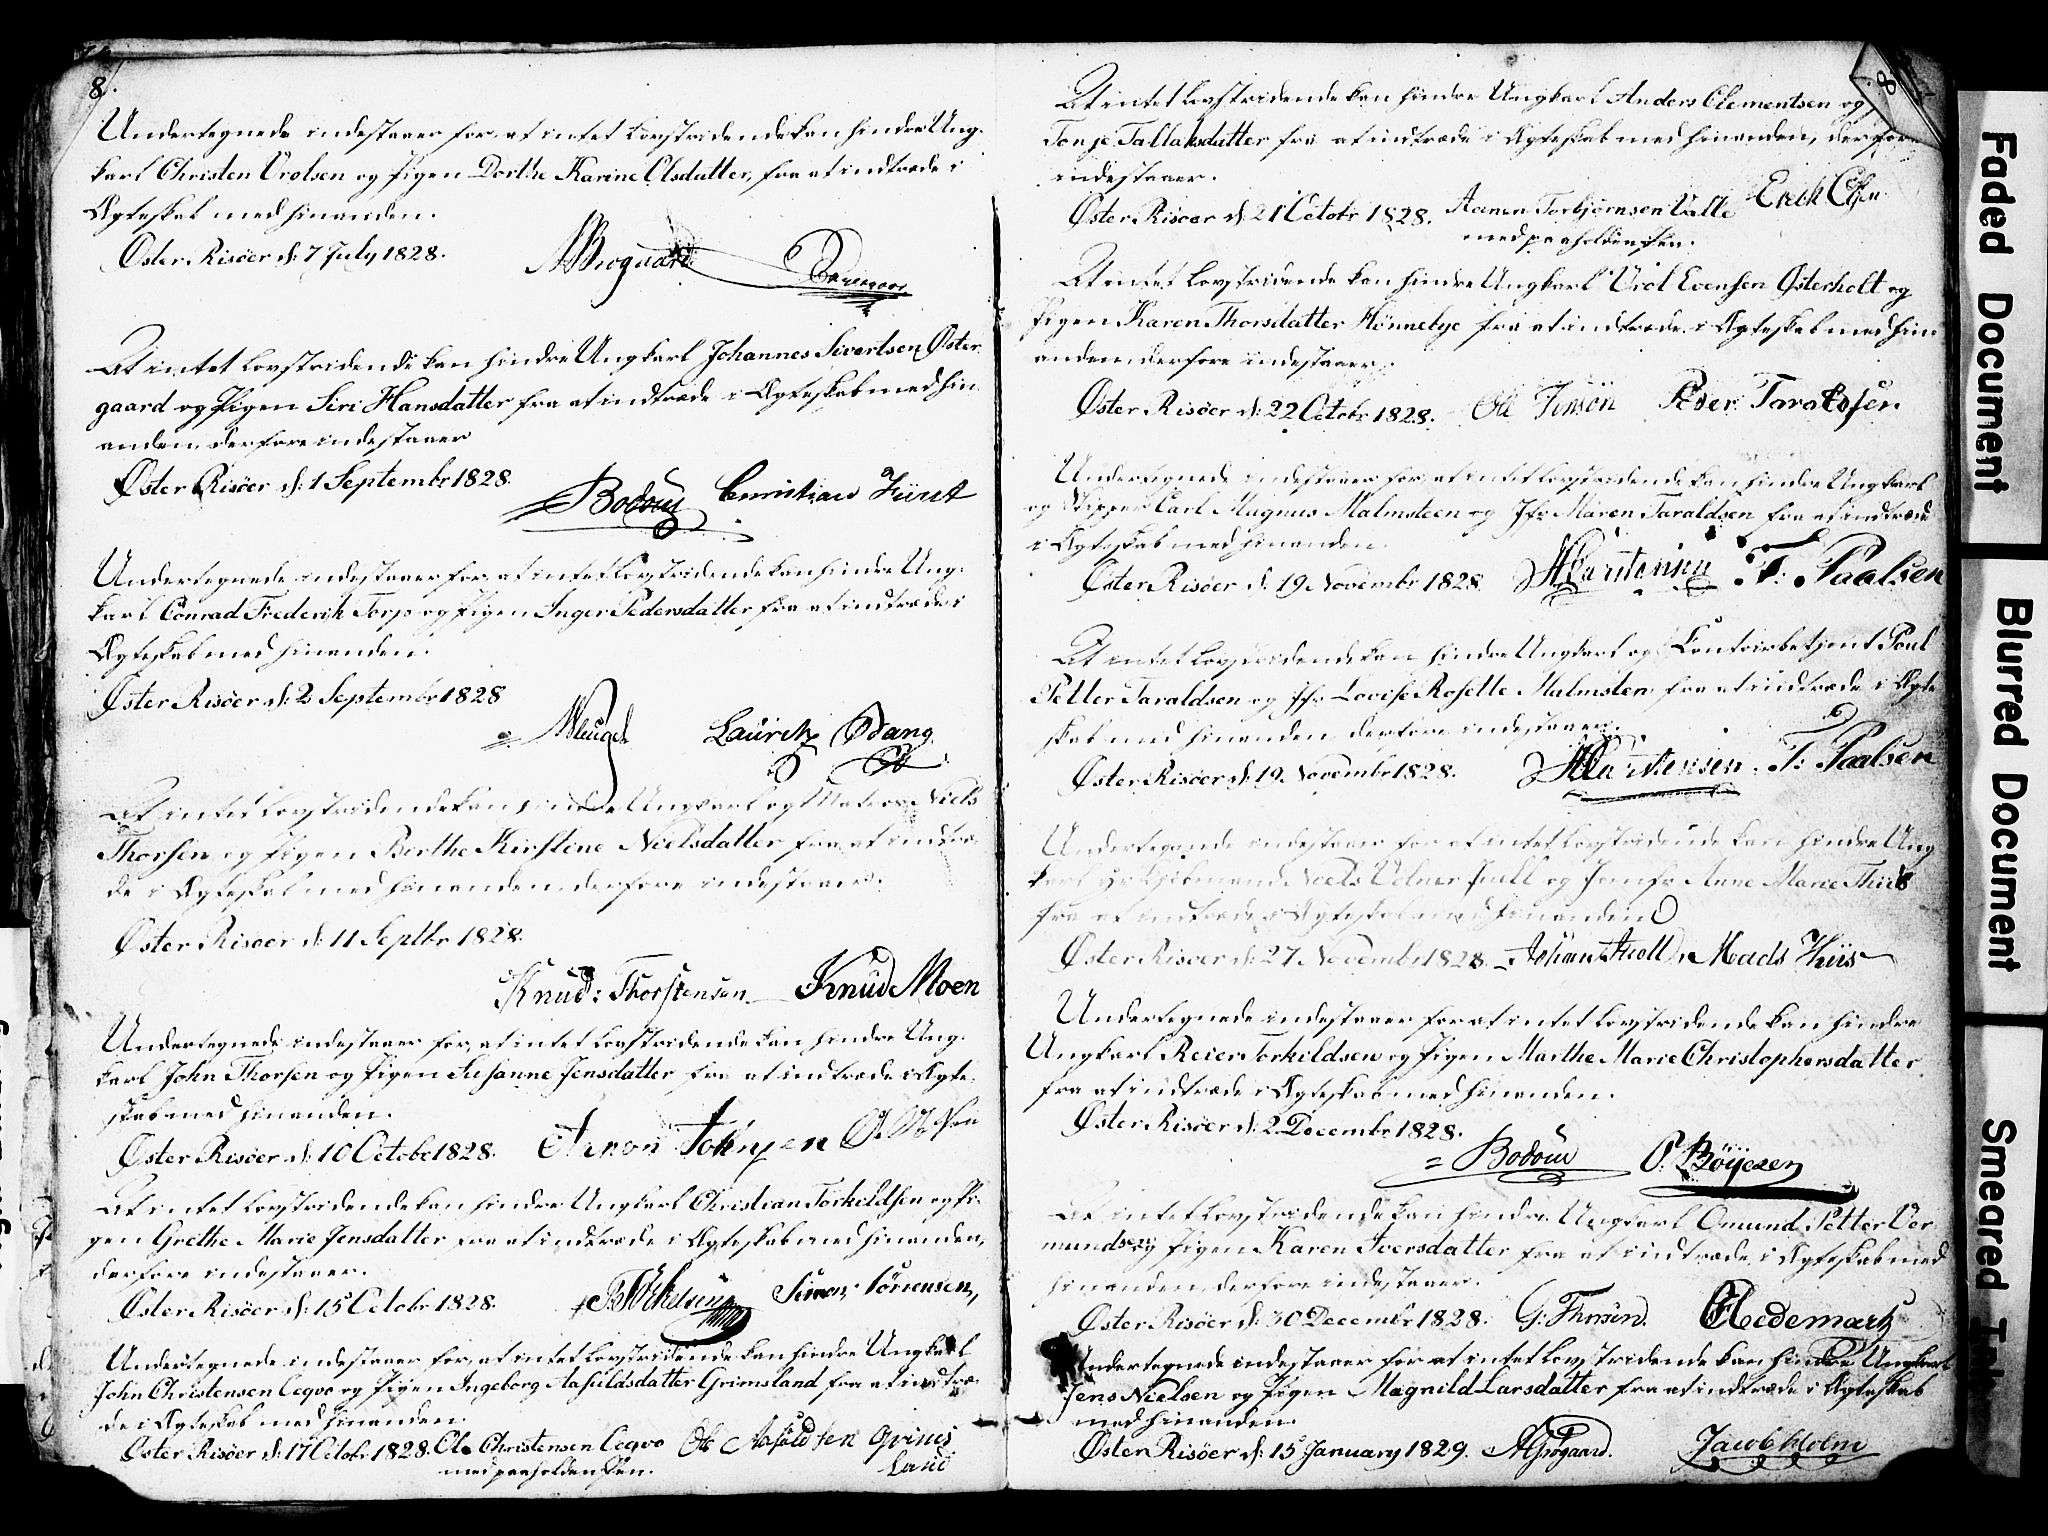 8.
Undertegnede indestaaer for, at intet Lovstridende kan hindre Ung-
karl Christen Vrolsen og Pigen Dorthe Karine Olsdatter, fra at indtræde i
Ægteskab med hinanden.
Øster Risöer d: 7 July 1828.
At intet Lovstridende kan hindre Ungkarl Johannes Sivertsen Øster-
gaard og Pigen Siri Hansdatter fra at indtræde i Ægteskab med hin
anden, derfore indestaaer
Øster Risöer d: 1 Septembr 1828.
Bodom Christian Fürst
Undertegnede indestaaer for, at intet Lovstridende kan hindre Ung-
karl Conrad Frederik Torp og Pigen Inger Pedersdatter fra at indtræde i
Ægteskab med hinanden.
Øster Risöer d: 2 Septembr 1828
Lauritz Dang
At intet Lovstridende kan hindre Ungkarl og Matros Niels
Thorsen og Pigen Berthe Kirstine Nielsdatter fra at indtræ-
de i Ægteskab med hinanden derfore indestaaer.
Øster Risöer d: 11 Septbr 1828.
Knud: Thorstensen Knud Moen
Undertegnede indestaaer for, at intet Lovstridende kan hindre Ung-
karl John Thorsen og Pigen Susanne Jensdatter fra at indtræde i Ægte-
skab med hinanden.
Øster Risöer d: 10 Octobr 1828.
At intet Lovstridende kan hindre Ungkarl Christian Torkildsen og Pi-
gen Grethe Marie Jensdatter fra at indtræde i Ægteskab med hinanden,
derfore indestaaer.
Øster Risöer d: 15 Octobr 1828. Simon Sörrensen,
Undertegnede indestaaer for, at intet Lovstridende kan hindre Ungkarl
John Christensen Coqvo og Pigen Ingeborg Aasuldsdatter Grimsland fra at indtræ-
de i Ægteskab med hinanden.
Øster Risöer d: 17 Octobr 1828. Ole Christensen Coqvo
med paaholden Pen.
8
At intet Lovstridende kan hindre Ungkarl Anders Clementsen og
Tonje Tallaksdatter fra at indtræde i Ægteskab med hinanden, derfore
indestaaer.
Øster Risöer d: 21 Octobr 1828. Aanen Torbjørnsen Valle Erich Olsen
med paaholden Pen.
At intet Lovstridende kan hindre Ungkarl Vrol Evensen Østerholt og
Pigen Karen Thorsdatter Hønnebye fra at indtræde i Ægteskab med hin
anden, derfore indestaaer.
Øster Risöer d: 22 Octobr 1828. Peder Taraldsen
Undertegnede indestaaer for, at intet Lovstridende kan hindre Ungkarl
og Skipper Carl Magnus Malmsteen og Jfr Maren Taraldsen fra at indtræde
i Ægteskab med hinanden.
Øster Risöer d: 19 Novembr 1828. T: Paalsen
At intet Lovstridende kan hindre Ungkarl og Contoirbetjent Poul
Petter Taraldsen og Jfr Lovise Rosette Malmsten fra at indtræde i Ægte
skab med hinanden derfore indestaaer.
Øster Risöer d: 19 Novembr 1828. T: Paalsen
Undertegnede indestaaer for at intet Lovstridende kan hindre Ung
karl Niels Velner Juell og Jomfr Anne Marie Thiis
fra at indtræde i Ægteskab med hinanden
Øster Risöer d: 27 Novembr 1828. Mads Thiis
Undertegnede indestaaer for at intet Lovstridende kan hindre
Ungkarl Reier Torkildsen og Pigen Marthe Marie Christophersdatter
fra at indtræde i Ægteskab med hinanden.
Øster Risöer d: 2 Decembr 1828.
Bodom P. Böijesen
At intet Lovstridende kan hindre Ungkarl Omund Petter Ver-
mundsen og Pigen Karen Iversdatter fra at indtræde i Ægteskab med
hinanden derfore indestaaer.
Øster Risöer d: 30 Decembr 1828. Hedemark
Undertegnede indestaaer for at intet Lovstridende kan hindre Ungkarl
Jens Nielsen og Pigen Magnild Larsdatter fra at indtræde i Ægteskab
med hinanden.
Øster Risöer d: 15 January 1829. Jacob Holm
Faded Document
Blurred Document
Smeared